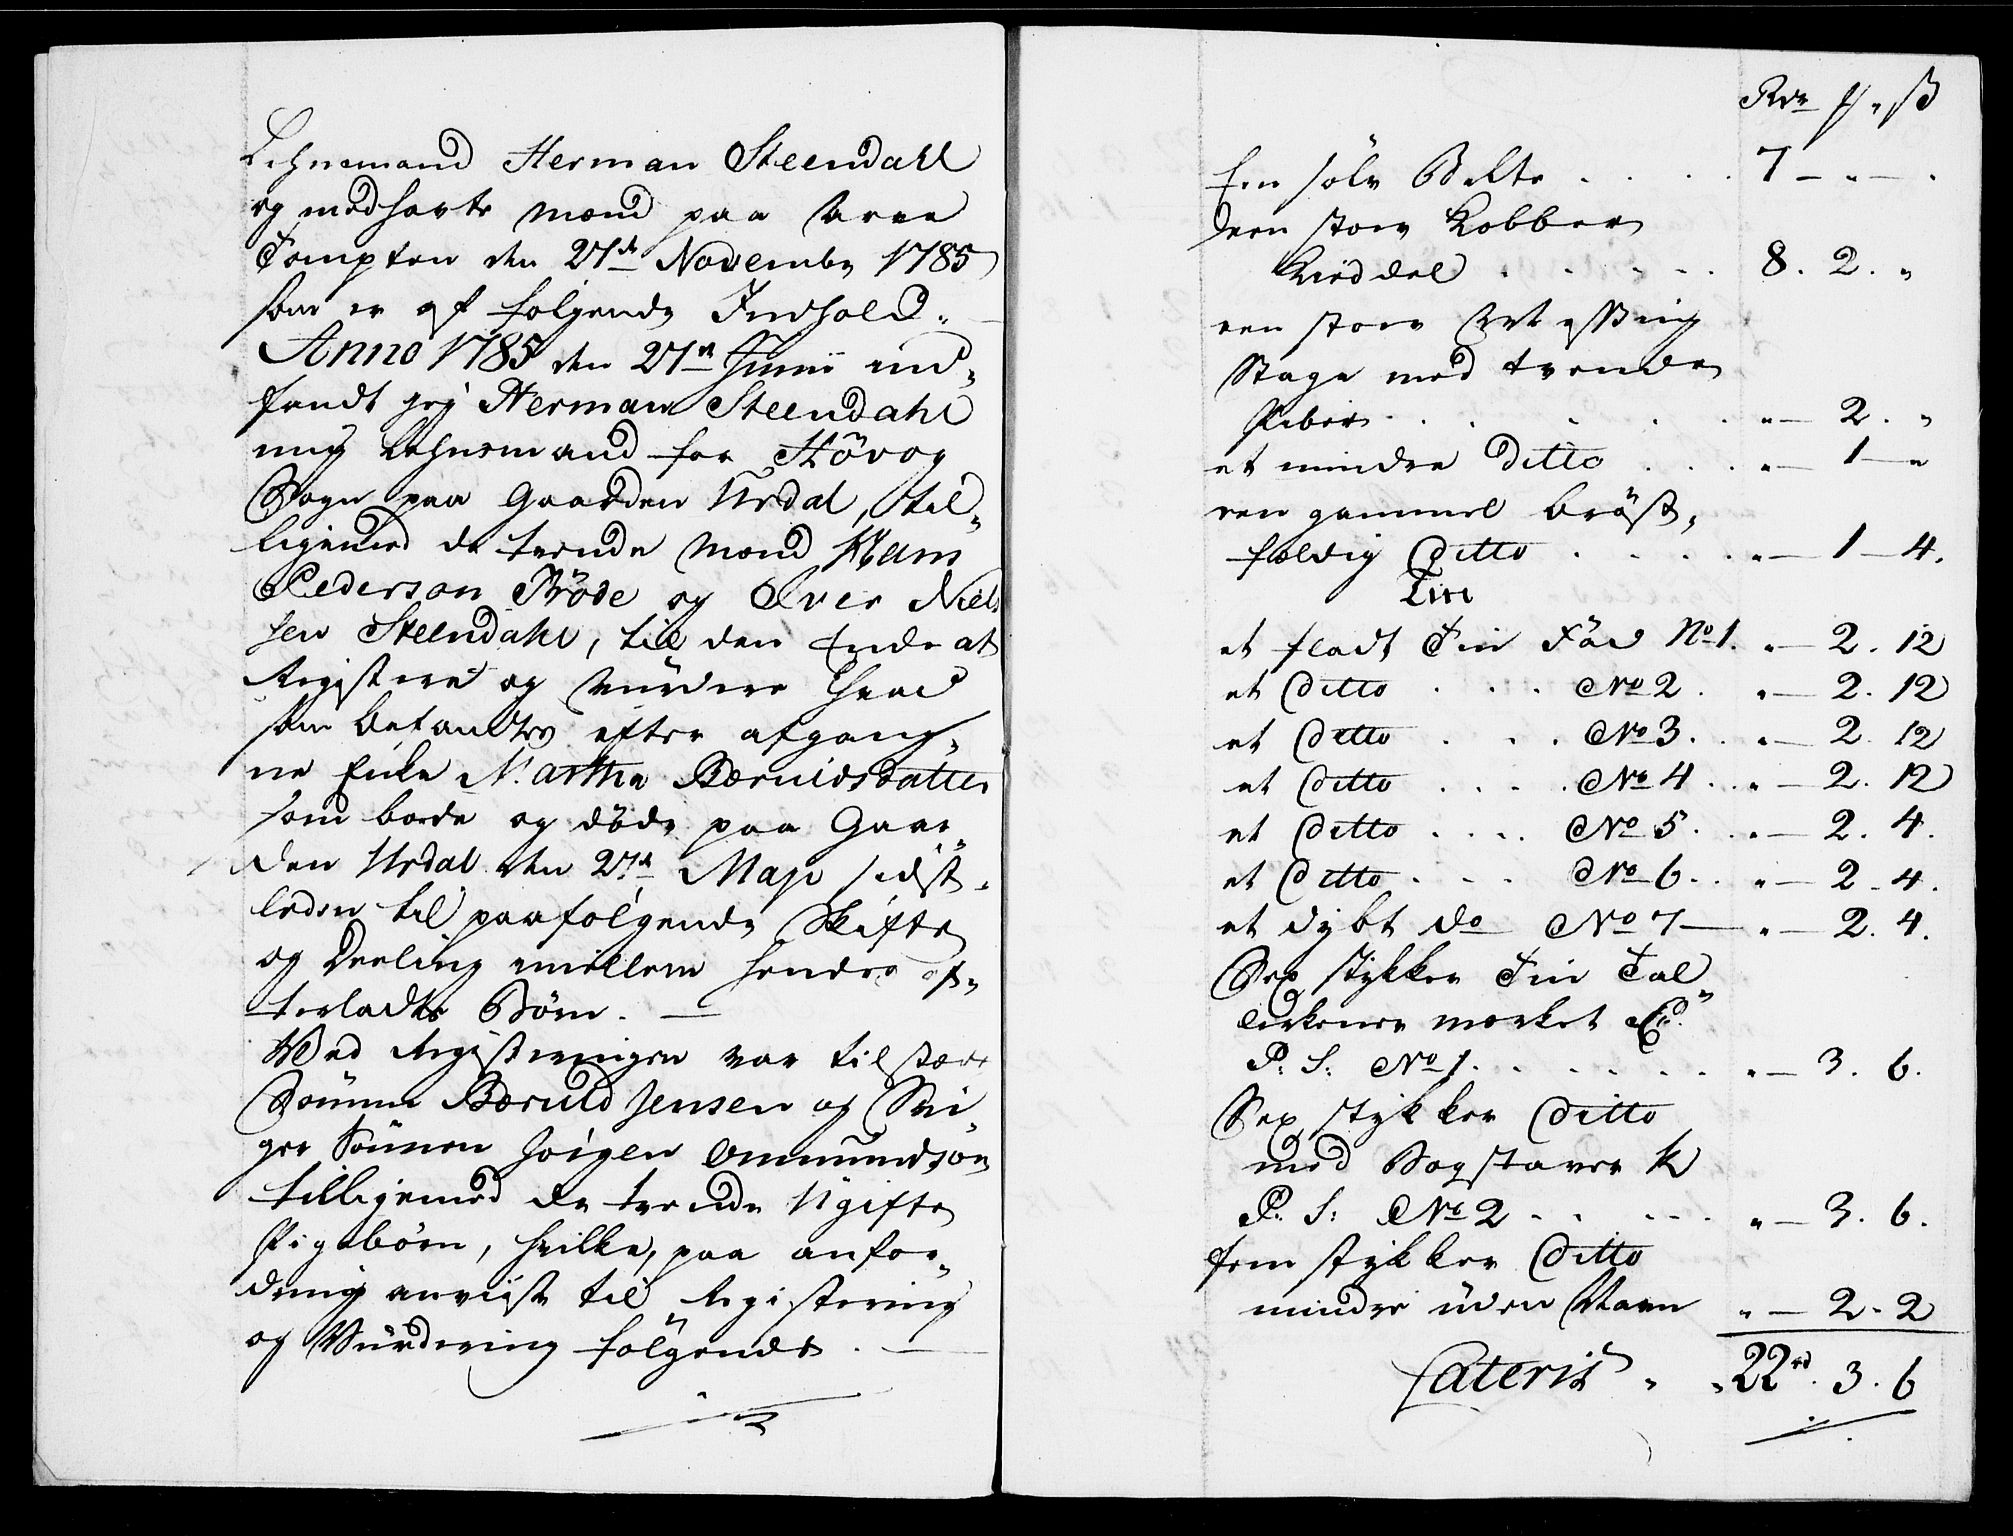 Lehnsmand Herman Steendahl
og medhavte Mænd paa Arve
Tompten den 27de Novembr 1785
som er af følgende Indhold.
Anno 1785 den 27de Junii ind„
fandt jeg Herman Steendahl
mig Lehnsmand for Høvog
Sogn paa Gaarden Urdal, til„
ligemed de tvende Mænd Hans
Pedersøn Røde og Iver Niels
sen Steendahl, til den Ende at
Registere og Vurdere hvad
som befandtes efter afgang„
ne Enke Marthe Bærnidsdatter
som boede og døde paa Gaar„
den Urdal den 27de Maji sidst„
leden til paafølgende Skifte
og Deeling imellem hendes ef„
terladte Børn. —
Ved Registeringen var tilstæde
Sønnen Bæruld Jensen og Svi„
ger Sønnen Jörgen Ommundsøn
tilligemed de tvende Ugifte
Pigebørn, hvilke, paa anfor„
dring anviiste til Registering
og Vurdering følgende. —
Rdr ƒ „ ß
Een sölv Belte . . . . 7 — „ — „
Een stor Kobber
Kieddel . . . . 8. 2. „
een stor Messing
Stage med tvende
Piber . . . . „ — 2. „
et mindre Ditto . . . „ — 1 — „
een gammel brøst„
fældig Ditto . . . . „ — 1 — 4.
Tin
et fladt Tin Fad No 1. „ — 2. 12
et Ditto . . . No 2. „ — 2. 12
et Ditto . . . No 3. „ — 2. 12
et Ditto . . . . No 4. „ — 2. 12
et Ditto . . . . No 5. „ — 2. 4.
et Ditto . . . No 6. „ — 2. 4.
et dybt do No 7 — „ — 2. 4.
Sex stykker Tin Tal„
lerkener mærket
P: S: No 1. . . . . „ — 3. 6.
Sex stykker Ditto
med Bogstaver K
P: S: No 2 . . . . „ — 3. 6.
fem stykker Ditto
mindre uden Navn „ — 2. 2
Lateris „ „ 22rd. 3. 6